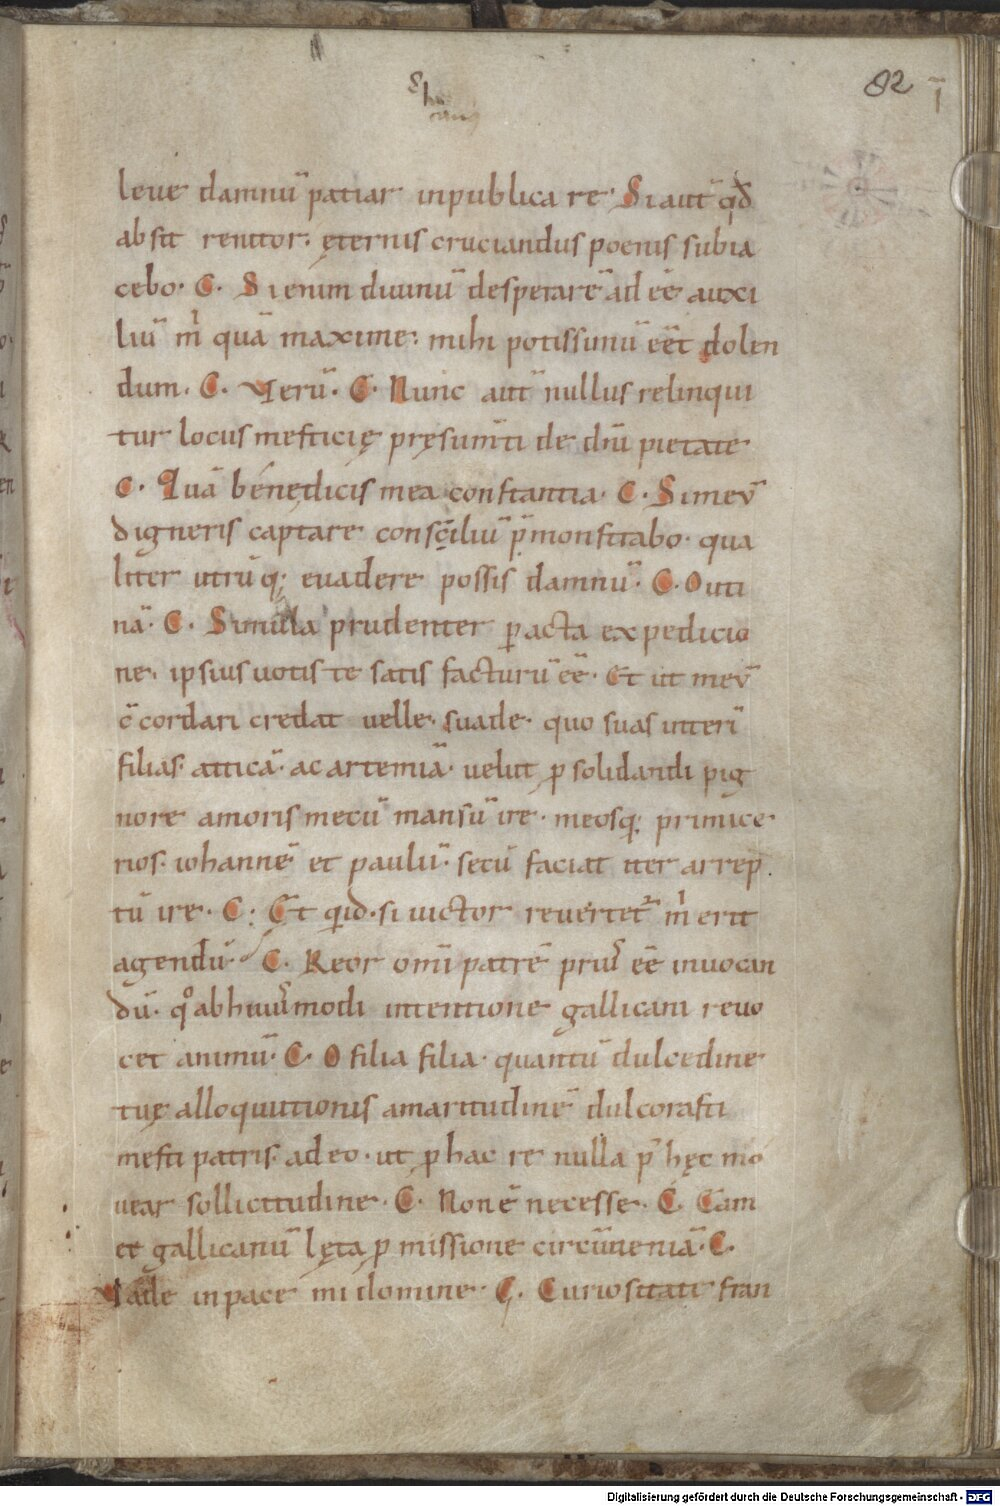 82
leve damnū patiar inpublica re· Si aut̄ qđ
absit renitor· ęternis cruciandus poenis subia
cebo· C· Si enim diuinū desperarē ad eē auxi
liū m̄ quā maxime· mihi potissimū eēt dolen
dum· C· Verū· C· Nunc aut̄ nullus relinqui
tur locus mesticię pręsum̄ti de dn̄i pietate
C· Quā benedicis mea constantia· C· Si mev̄
digneris captare consc̨iliū p̄monstrabo· qua
liter utrūq; euadere possis damnū· C· O uti
nā· C· Simula prudenter ꝑacta expedicio
ne· ipsius uotis te satis facturū eē· Et ut mev̄
c̄cordari credat uelle· suade· quo suas interī
filias· atticā· ac artemiā· uelut ꝑ solidandi pig
nore amoris mecū mansū ire· meosq; primice
rios· iohannē et paulū· secū faciat iter arrep
tū ire· C: Et qid· si uictor reuertet̄ m̄ erit
agendū C· Reor omī patrē pri᷒ eē inuocan
dū· qͦ abhui᷒modi intentione gallicani reuo
cet animū· C· O filia filia· quantū dulcedine
tuę alloquutionis amaritudinē dulcorasti
mesti patris· adeo· ut ꝑ hac re nulla p̄ hęc mo
uear sollicitudine· C· Non ē necesse· C· Eam
et gallicanū lęta ꝑmissione circūueniā· C·
Vade inpace mi domine· C· Curiositate fran
Digitalisierung gefördert durch die Deutsche Forschungsgemeinschaft - DFG